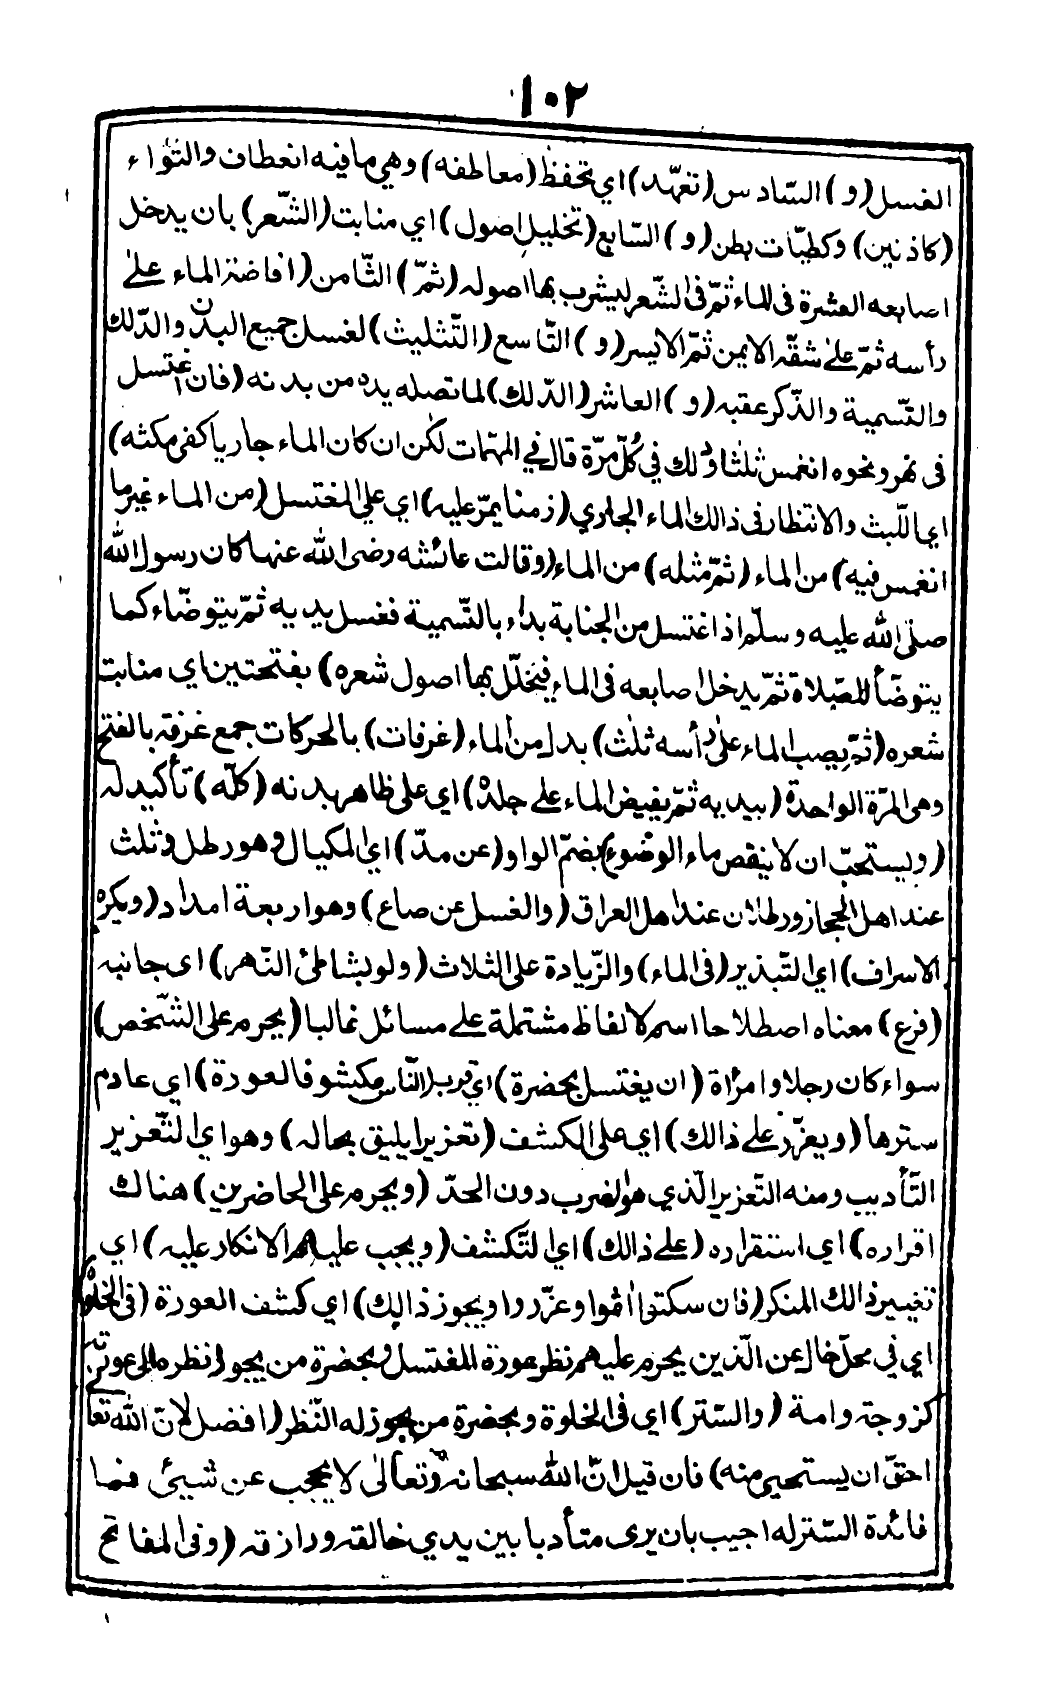 ١٠٢
الغسل (و) السّادس (تعهّد) اي تحفظ (معاطفه) وهي ما فيه انعطاف والتوٰاء
(كاذنين) وكطيّات بطن (و) السّابع (تخليل اصول) اي منابت (الشّعر) بان يدخل
اصابعه العشرة فى الماء ثمّ فى الشعر ليشرب بها اصوله (ثمّ) الثّامن (افاضة الماء علىٰ
رأسه ثمّ علىٰ شقّه الايمن ثمّ الايسر (و) التّاسع (التّثليث) لغسل جميع البدن والدّلك
والتّسمية والذّكر عقبه (و) العاشر (الدّلك) لما تصله يده من بدنه (فان اغتسل
فى نهر ونحوه انغمس ثلثا وذٰلك في كُلّ مرّة قال في المهمّات لٰكن ان كان الماء جاريا كفى مكثه)
اي اللّبث والانتظار فى ذالك الماء الجاري (زمنا يمرّ عليه) اي علي المغتسل (من الماء غير ما
انغمس فيه) من الماء (ثمّ مثله) من الماء (وقالت عائشه رضى الله عنها كان رسول الله
صلى الله عليه وسلّم اذا غتسل من الجنابة بداء بالتّسمية فغسل يديه ثمّ يتوضّاء كما
يتوضّأ للصّلاة ثمّ يدخل اصابعه فى الماء فيخلّل بها اصول شعره) بفتحتين اي منابت
شعره (ثمّ يصب الماء علىٰ رأسه ثلٰث) بدل من الماء (غرفات) بالحركات جمع غرفه بالفتح
وهى المرّة الواحدة (بيديه ثمّ يفيض الماء علىٰ جلده) اي على ظاهر بدنه (كلّه) تأكيد له
(ويستحبّ ان لا ينقص ماء الوضوء) بضمّ الواو (عن مدّ) اي المكيال وهو رطل وثلث
عند اهل الحجاز ورطلان عند اهل العراق (والغسل عن صاع) وهو اربعة امداد (ويكره
الاسراف) اي التبذير (فى الماء) والزّيادة على الثلاث (ولو بشاطئ النّهر) اى جانبه
(فرع) معناه اصطلاحا اسم لالفاظ مشتملة علىٰ مسائل غالبا (يحرم على الشّخص)
سواء كان رجلا وامرأة (ان يغتسل بحضرة) اي قرب (النّاس مكشوف العورة) اي عادم
سترها (ويعزّر علىٰ ذالك) اي على الكشف (تعزيرا يليق بحاله) وهو اي التّعزير
التّأديب ومنه التّعزير الّذي هو الضرب دون الحدّ (ويحرم على الحاضرين) هناك
اقراره) اي استقراره (على ذالك) اي التّكشف (ويجب عليهم الانكار عليه) اي
تغيير ذالك المنكر (فان سكتوا اثموا وعزّروا ويجوز ذالك) اي كشف العورة (فى الخلوة
اي في محلّ خال عن الّذين يحرم عليهم نظر عورة المغتسل وبحضرة من يجوز نظره الى عورته
كزوجة وامة (والسّتر) اي فى الخلوة وبحضرة من يجوز له النّظر (افضل لانّ الله تعا
احقّ ان يستحيى منه) فان قيل انّ الله سبحانه وتعالىٰ لا يحجب عن شيئ فما
فائدة السّتر له اجيب بان يرى متأدبا بين يدي خالقه ورازقه (وفى المفاتح